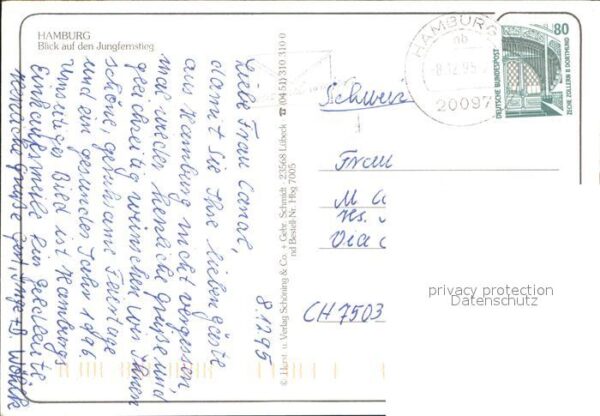 HAMBURG
Blick auf den Jungfernstieg
8.12.95
Liebe Frau Canal,
damit Sie Ihre lieben Gäste
aus Hamburg nicht vergessen,
mal wieder herzliche Grüße und
gleichzeitig wünschen wir Ihnen
schöne, geruhsame Feiertage
und ein gesundes Jahr 1996.
Umseitiges Bild ist Hamburgs
Einkaufsmeile für Geldleute.
Herzliche Grüße Ihre
© Horst u. Verlag Schöning & Co. + Gebr. Schmidt · 23568 Lübeck ☎ (04 51) 310 310 0
nd Bestell-Nr. Hbg 7005
HAMBURG
-8.12.95
20097
80
DEUTSCHE BUNDESPOST
ZECHE ZOLLERN II DORTMUND
Schweiz
Frau
M
Via
CH 7503
privacy protection
Datenschutz